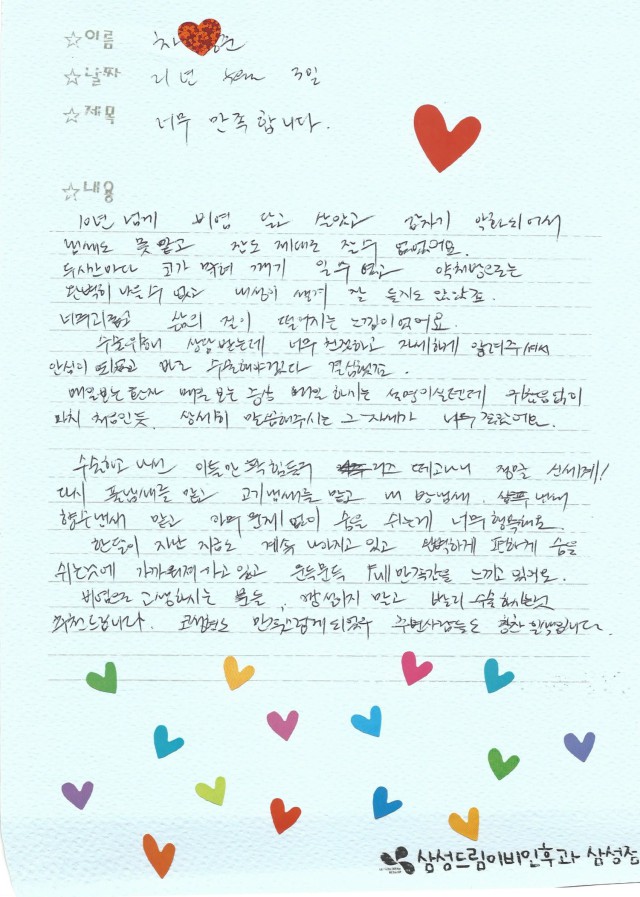 ☆이름 차
☆날짜 21년 3일
☆제목 너무 만족합니다.
☆내용
10년 넘게 비염 달고 살았고 갑자기 악화되어서
냄새도 못 맡고 잠도 제대로 잘 수 없었어요.
두시간마다 코가 막혀 깨기 일수였고 약처방으로는
완벽히 나을 수 없고 내성이 생겨 잘 듣지도 않았죠.
너무 괴롭고 삶의 질이 떨어지는 느낌이었어요.
수술위해 상담 받는데 너무 친절하고 자세하게 알려주셔서
안심이 되었고 바로 수술해야겠다 결심했죠.
매일보는 환자 매일 보는 증상 매일 하시는 설명이실텐데 귀찮음 없이
마치 처음인듯. 상세히 말씀해주시는 그 자세가 너무 좋았어요.
수술하고 나서 이틀만 꾹 힘들뒤 떼고나니 정말 신세계!
다시 풀냄새를 맡고 고기냄새를 맡고 내 방냄새, 샴푸 냄새
향수냄새 맡고 아무 문제 없이 숨을 쉬는게 너무 행복해요.
한달이 지난 지금도 계속 나아지고 있고 완벽하게 편하게 숨을
쉬는것에 가까워져가고 있고 문득문득 Full 만족감을 느끼고 있어요.
비염으로 고생하시는 분들, 망설이지 말고 빨리 수술하시는것
추천드립니다. 코성형도 만족스럽게 되었 주변사람들도 칭찬 일색입니다.
삼성드림이비인후과 삼성점